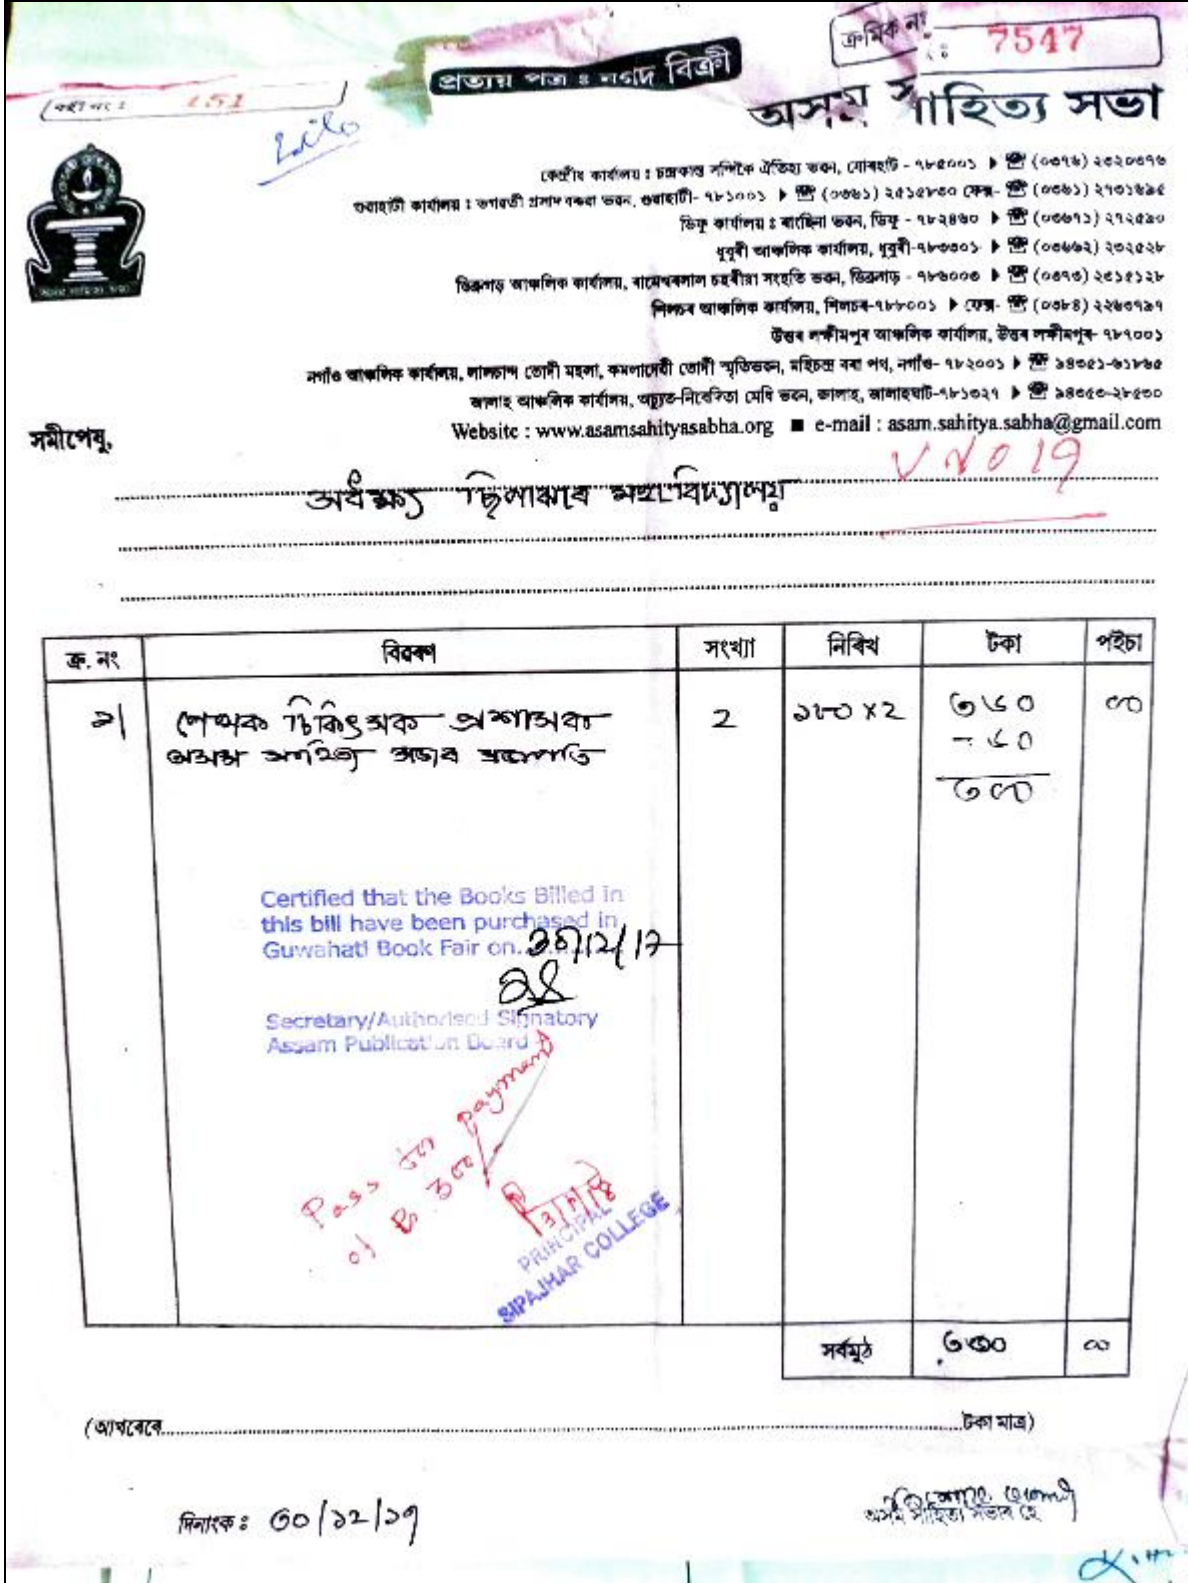 ক্রমিক নং : 7547
প্ৰত্যয় পত্ৰ : নগদ বিক্ৰী
(বহী নং : 151
অসম সাহিত্য সভা
কেন্দ্ৰীয় কাৰ্যালয় : চন্দ্ৰকান্ত সন্দিকৈ ঐতিহ্য ভৱন, যোৰহাট - ৭৮৫০০১ (০৩৭৬) ২৩২০৩৭৬
গুৱাহাটী কাৰ্যালয় : ভগৱতী প্ৰসাদ বৰুৱা ভৱন, গুৱাহাটী- ৭৮১০০১ (০৩৬১) ২৫১৫৮৩০ ফেক্স-
ডিফু কাৰ্যালয় : ডিফু - ৭৮২৪৬০ (০৩৬৭১) ২৭২৫৯০
ধুবুৰী আঞ্চলিক কাৰ্যালয়, ধুবুৰী-৭৮৩৩০১ (০৩৬৬২) ২৩২৫২৮
ডিব্ৰুগড় আঞ্চলিক কাৰ্যালয়, সংহতি ভৱন, ডিব্ৰুগড় - ৭৮৬০০৩ (০৩৭৩) ২৩১৫১২৮
শিলচৰ আঞ্চলিক কাৰ্যালয়, শিলচৰ-৭৮৮০০১ ফেক্স- (০৩৮৪) ২২৬৩৭৯৭
উত্তৰ লক্ষীমপুৰ আঞ্চলিক কাৰ্যালয়, উত্তৰ লক্ষীমপুৰ- ৭৮৭০০১
নগাঁও আঞ্চলিক কাৰ্যালয়, লালচান্দ তোদী মহলা, কমলাদেৱী তোদী স্মৃতিভৱন, মহিচন্দ্ৰ বৰা পথ, নগাঁও- ৭৮২০০১ ৯৪৩৫১-৬১৮৬৫
জালাহ আঞ্চলিক কাৰ্যালয়, মেধি ভৱন, জালাহ, জালাহঘাট-৭৮১৩২৭ ৯৪৩৫৩-২৮৫৩০
Website : www.asamsahityasabha.org ■ e-mail : asam.sahitya.sabha@gmail.com
সমীপেষু,
V NO 19
অধ্যক্ষ্য ছিপাঝাৰ মহাবিদ্যালয়
ক্ৰ. নং বিৱৰণ সংখ্যা নিৰিখ টকা পইচা
১| লেখক চিকিৎসক প্ৰশাসক 2 ১৮০ X 2 ৩৬০ ০০
অসম সাহিত্য সভাৰ সভাপতি - ৬০
৩০০
Certified that the Books Billed in
this bill have been purchased in
Guwahati Book Fair on. 30/12/17
Secretary/Authorised Signatory
Assam Publication Board
Pass for payment
of Rs 300/
PRINCIPAL
SIPAJHAR COLLEGE
সৰ্বমুঠ ৩০০ ০০
(আখৰেৰে টকা মাত্ৰ)
দিনাংক : ৩০/১২/১৭
অসম সাহিত্য সভাৰ হৈ